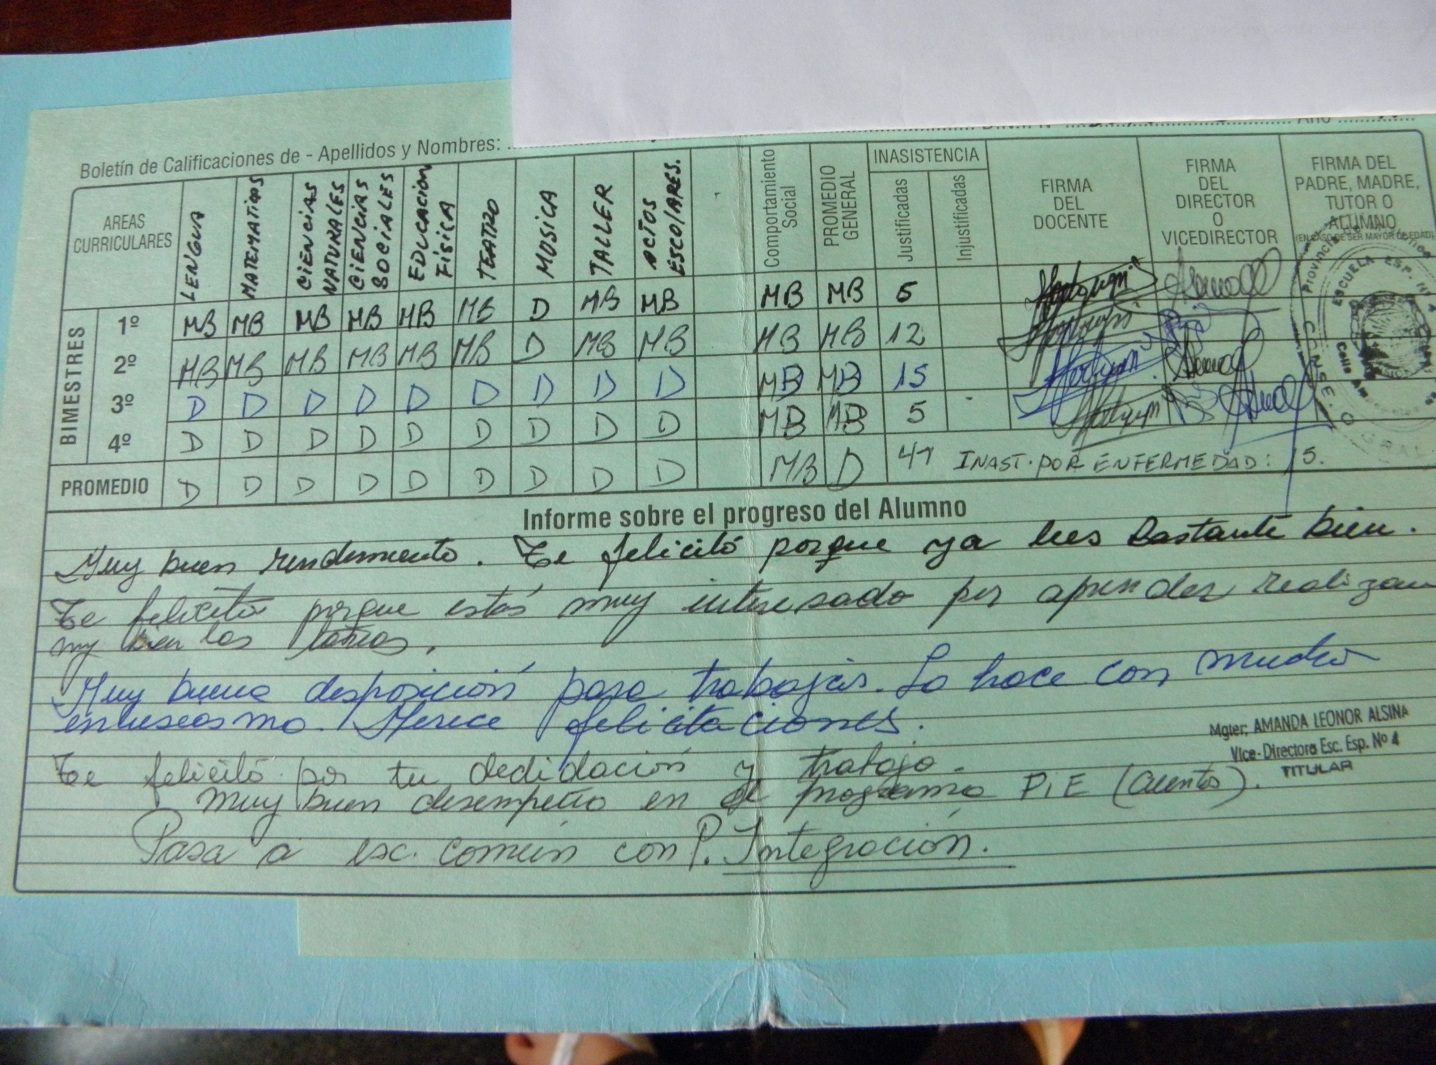 Boletín de Calificaciones de - Apellidos y Nombres:
AREAS CURRICULARES LENGUA MATEMATICAS CIENCIAS NATURALES CIENCIAS SOCIALES EDUCACIÓN FISICA TEATRO MUSICA TALLER ACTOS ESCOLARES. Comportamiento Social PROMEDIO GENERAL INASISTENCIA Justificadas Injustificadas FIRMA DEL DOCENTE FIRMA DEL DIRECTOR O VICEDIRECTOR FIRMA DEL PADRE, MADRE, TUTOR O ALUMNO (EN CASO DE SER MAYOR DE EDAD)
BIMESTRES
1º MB MB MB MB MB MB D MB MB MB MB 5
2º MB MB MB MB MB MB D MB MB MB MB 12
3º D D D D D D D D D MB MB 15
4º D D D D D D D D D MB MB 5
PROMEDIO D D D D D D D D D MB D 41 INAST. POR ENFERMEDAD: 15.
ESCUELA ESP. Nº 4
Informe sobre el progreso del Alumno
Muy buen rendimiento. Te felicito porque ya lees bastante bien.
Te felicito porque estás muy interesado por aprender
muy bien las tareas.
Muy buena disposición para trabajar. Lo hace con mucho
entuseasmo. Merece felicitaciones.
Te felicito por tu dedidación y trabajo.
Muy buen desempeño en el programa PIE (Cuentos).
Pasa a esc. común con P. Integración.
Mgter. AMANDA LEONOR ALSINA
Vice-Directora Esc. Esp. Nº 4
TITULAR